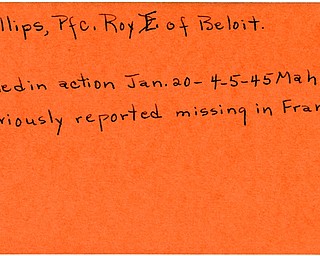 llips, Pfc. Roy E of Beloit.
ed in action Jan. 20 - 4-5-45 Mah
riously reported missing in Fran